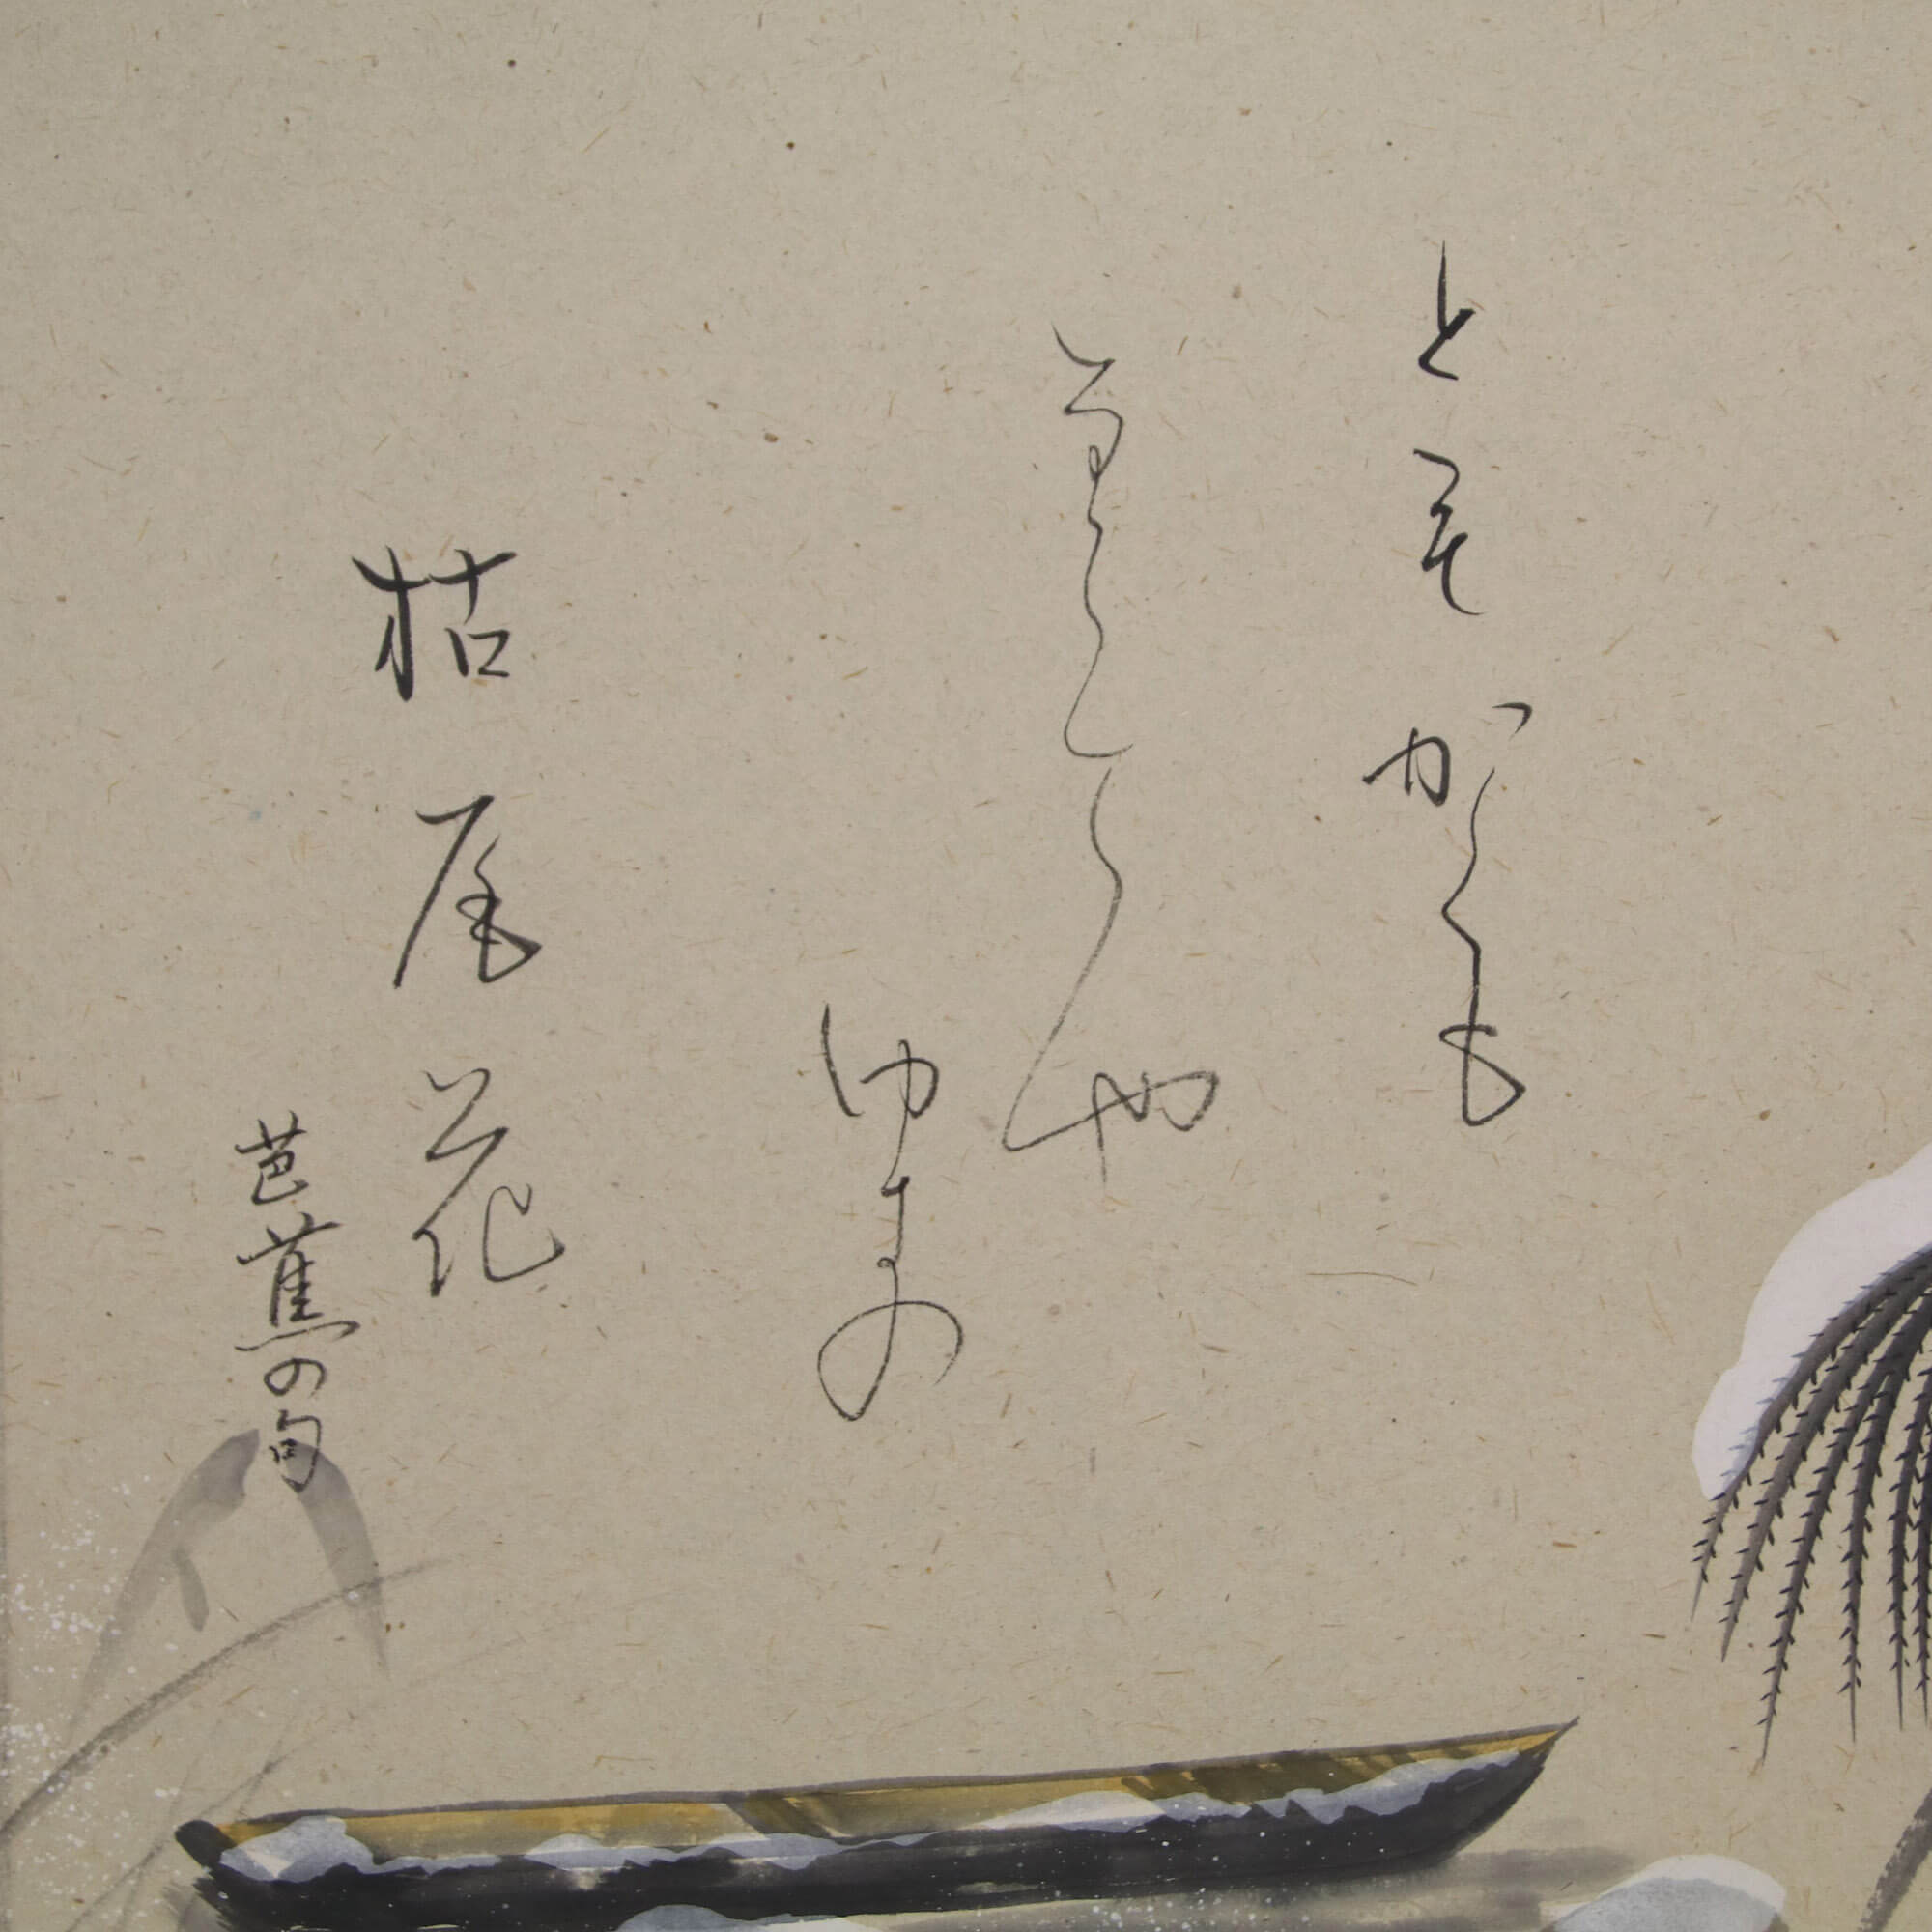 ともかくも
ならでや
ゆきの
枯尾花
芭蕉の句